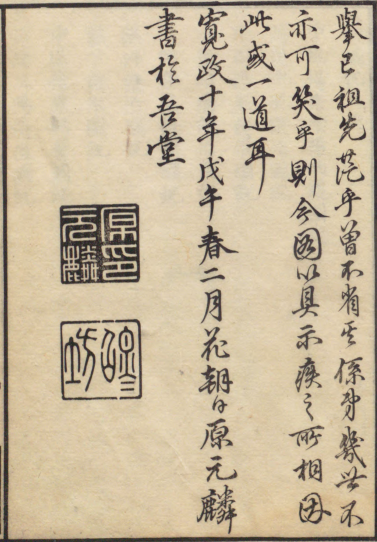 舉己祖先茫乎曾不省其係身幾世不
亦可笑乎則今圖以具示疾之所相因
此或一道耳
寛政十年戊午春二月花朝日原元麟
書於吾堂
原印元麟